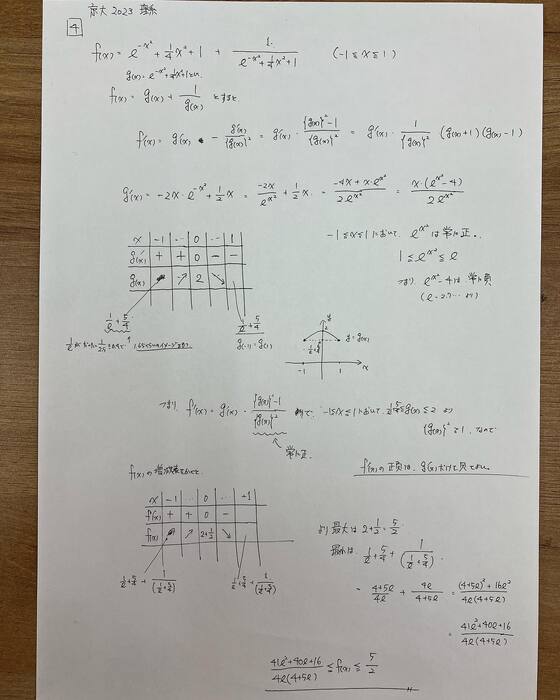 京大 2023 理系
4
f(x) = e^{-x²} + 1/4 x² + 1 + 1/(e^{-x²} + 1/4 x² + 1) (-1 ≤ x ≤ 1)
g(x) = e^{-x²} + 1/4 x² + 1
f(x) = g(x) + 1/g(x) とすると
f'(x) = g'(x) - g'(x)/{g(x)}² = g'(x)・({g(x)}² - 1)/{g(x)}² = g'(x)・1/{g(x)}² (g(x)+1)(g(x)-1)
g'(x) = -2x・e^{-x²} + 1/2 x = -2x/e^{x²} + 1/2 x = (-4x + x・e^{x²})/2e^{x²} = x・(e^{x²} - 4)/2e^{x²}
x -1 … 0 … 1
g'(x) + + 0 - -
g(x) ↗ 2 ↘
1/e + 5/4
1/e + 5/4
g(-1) = g(1)
-1 ≤ x ≤ 1 において e^{x²} は常に正.
1 ≤ e^{x²} ≤ e
つまり e^{x²} - 4 は常に負
(e = 2.7… より)
y
y = g(x)
-1 1 x
つまり f'(x) = g'(x)・({g(x)}² - 1)/{g(x)}² -1 ≤ x ≤ 1 において 5/4 ≤ g(x) ≤ 2 より
{g(x)}² > 1 なので
常に正.
f'(x)の正負は、g'(x)だけで
f(x)の増減表をかくと
x -1 … 0 … +1
f'(x) + + 0 -
f(x) ↗ 2+1/2 ↘
1/e + 5/4 + 1/(1/e + 5/4)
1/e + 5/4 + 1/(1/e + 5/4)
より 最大は 2 + 1/2 = 5/2
最小は 1/e + 5/4 + 1/(1/e + 5/4)
= (4+5e)/4e + 4e/(4+5e) = ((4+5e)² + 16e²)/4e(4+5e)
= (41e² + 40e + 16)/4e(4+5e)
(41e² + 40e + 16)/4e(4+5e) ≤ f(x) ≤ 5/2